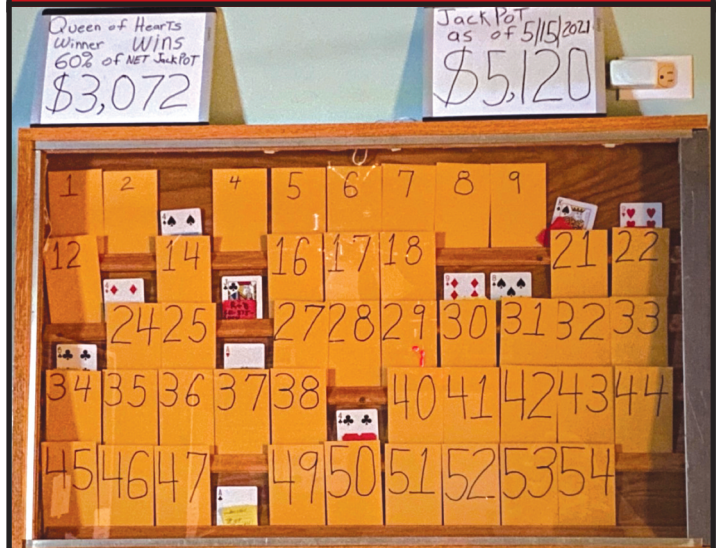 Queen of Hearts
Winner Wins
60% of NET JackPOT
$3,072
JackPoT
as of 5/15/2021
$5,120
1 2 4 5 6 7 8 9
12 14 16 17 18 21 22
24 25 27 28 29 30 31 32 33
34 35 36 37 38 40 41 42 43 44
45 46 47 49 50 51 52 53 54